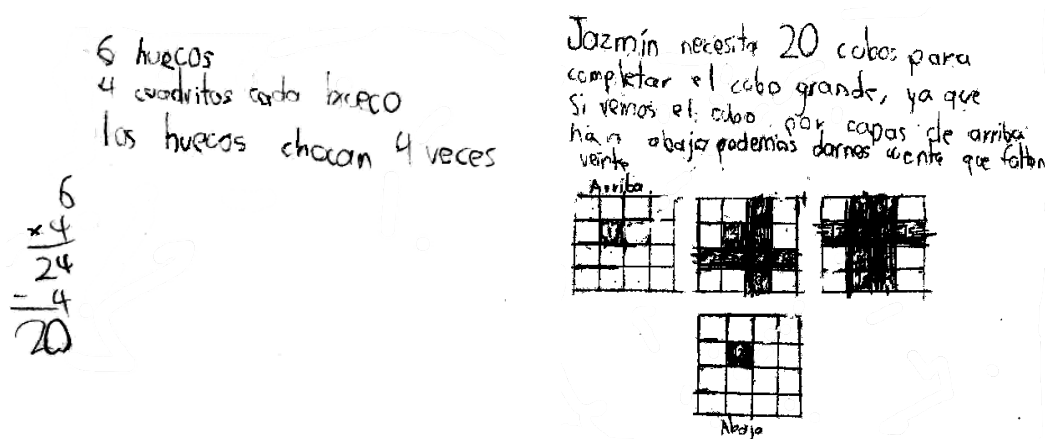 6 huecos
4 cuadritos cada hueco
los huecos chocan 4 veces
6
×4
24
- 4
20
Jazmín necesita 20 cubos para
completar el cubo grande, ya que
si vemos el cubo por capas de arriba
abajo podemos darnos cuenta que faltan
veinte
Arriba
Abajo